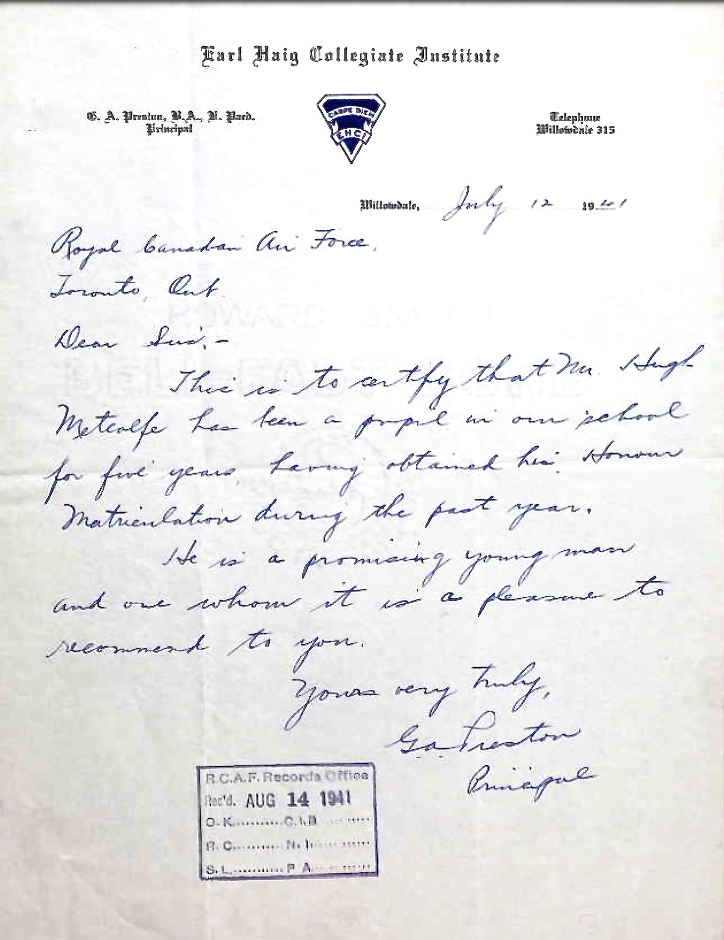 Earl Haig Collegiate Institute
G. A. Preston, B.A., B. Paed.
Principal
CARPE DIEM
EHCI
Telephone
Willowdale 315
Willowdale, July 12 1941
Royal Canadian Air Force,
Toronto, Ont.
Dear Sirs:-
This is to certify that Mr. Hugh
Metcalfe has been a pupil in our school
for five years, having obtained his Honour
Matriculation during the past year.
He is a promising young man
and one whom it is a pleasure to
recommend to you.
Yours very truly,
G.A. Preston
Principal
R.C.A.F. Records Office
Rec'd. AUG 14 1941
O.K..........C.I.B.......
R.C..........N.I.......
S.L..........P.A.......